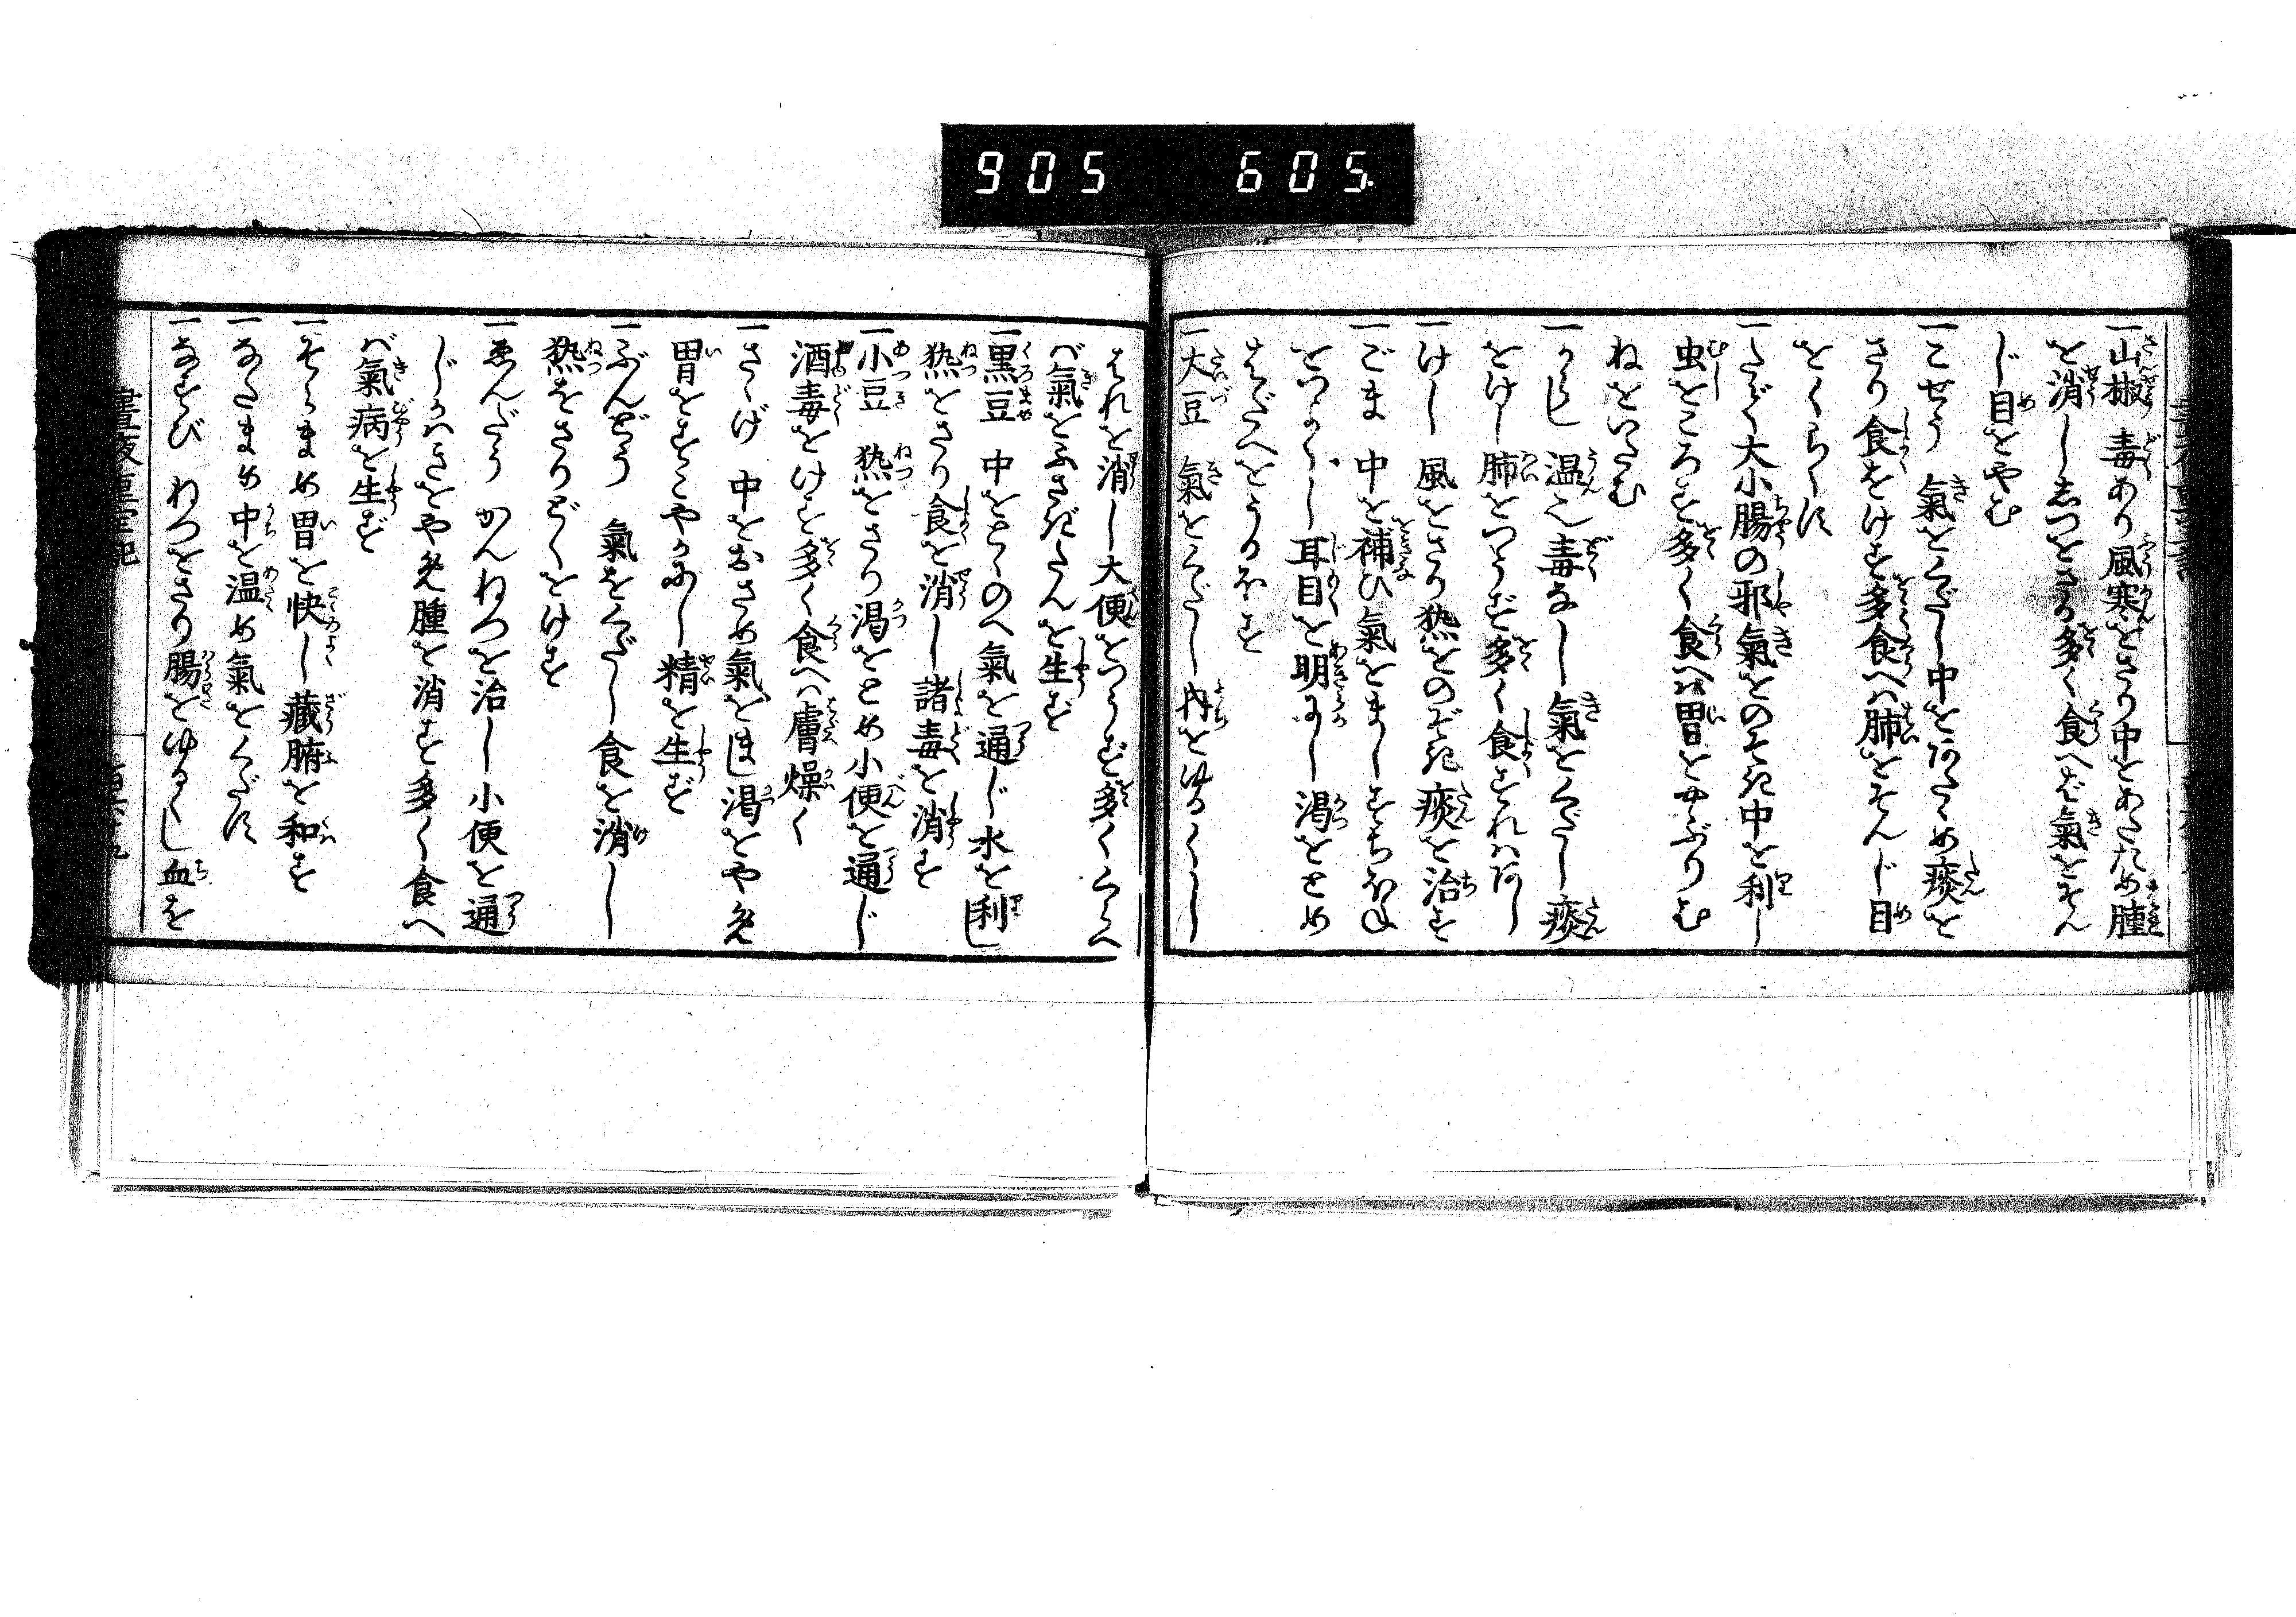 905 605
一山椒 毒あり風寒をさり中をあたため腫
を消ししつをさる多く食へば氣をそん
じ目をやむ
一こせう 氣をくだし中をあたゝめ痰を
さり食をけす多食へは肺をそんじ目
をくらくす
一たで 大小腸の邪氣をのそき中を利し
虫をころす多く食へは胃をやぶりむ
ねをいたむ
一からし 温也毒なし氣をくだし痰
をけし肺をつうず多く食すれは
一けし 風をさり熱をのぞき痰を治す
一ごま 中を補ひ氣をましすぢほね
をつよくし耳目を明にし渇をとめ
はだへをうるほす
一大豆 氣をくだし内をゆるくし
はれを消し大便をつうず多くくらへ
ば氣をふさぎたんを生ず
一黒豆 中をとゝのへ氣を通じ水を利し
熱をさり食を消し諸毒を消す
一小豆 熱をさり渇をとめ小便を通じ
酒毒をけす多く食へは膚燥く
一さゝげ 中をおさめ氣をまし渇をやめ
胃をすこやかにし精を生ず
一ぶんどう 氣をくだし食を消し
熱をさりどくをけす
一ゑんどう かんねつを治し小便を通
じ はきをやめ腫を消す多く食へ
ば氣病を生ず
一そらまめ 胃を快し藏腑を和す
一なたまめ 中を温め氣をくだす
一なすび ねつをさり腸をゆるくし血を